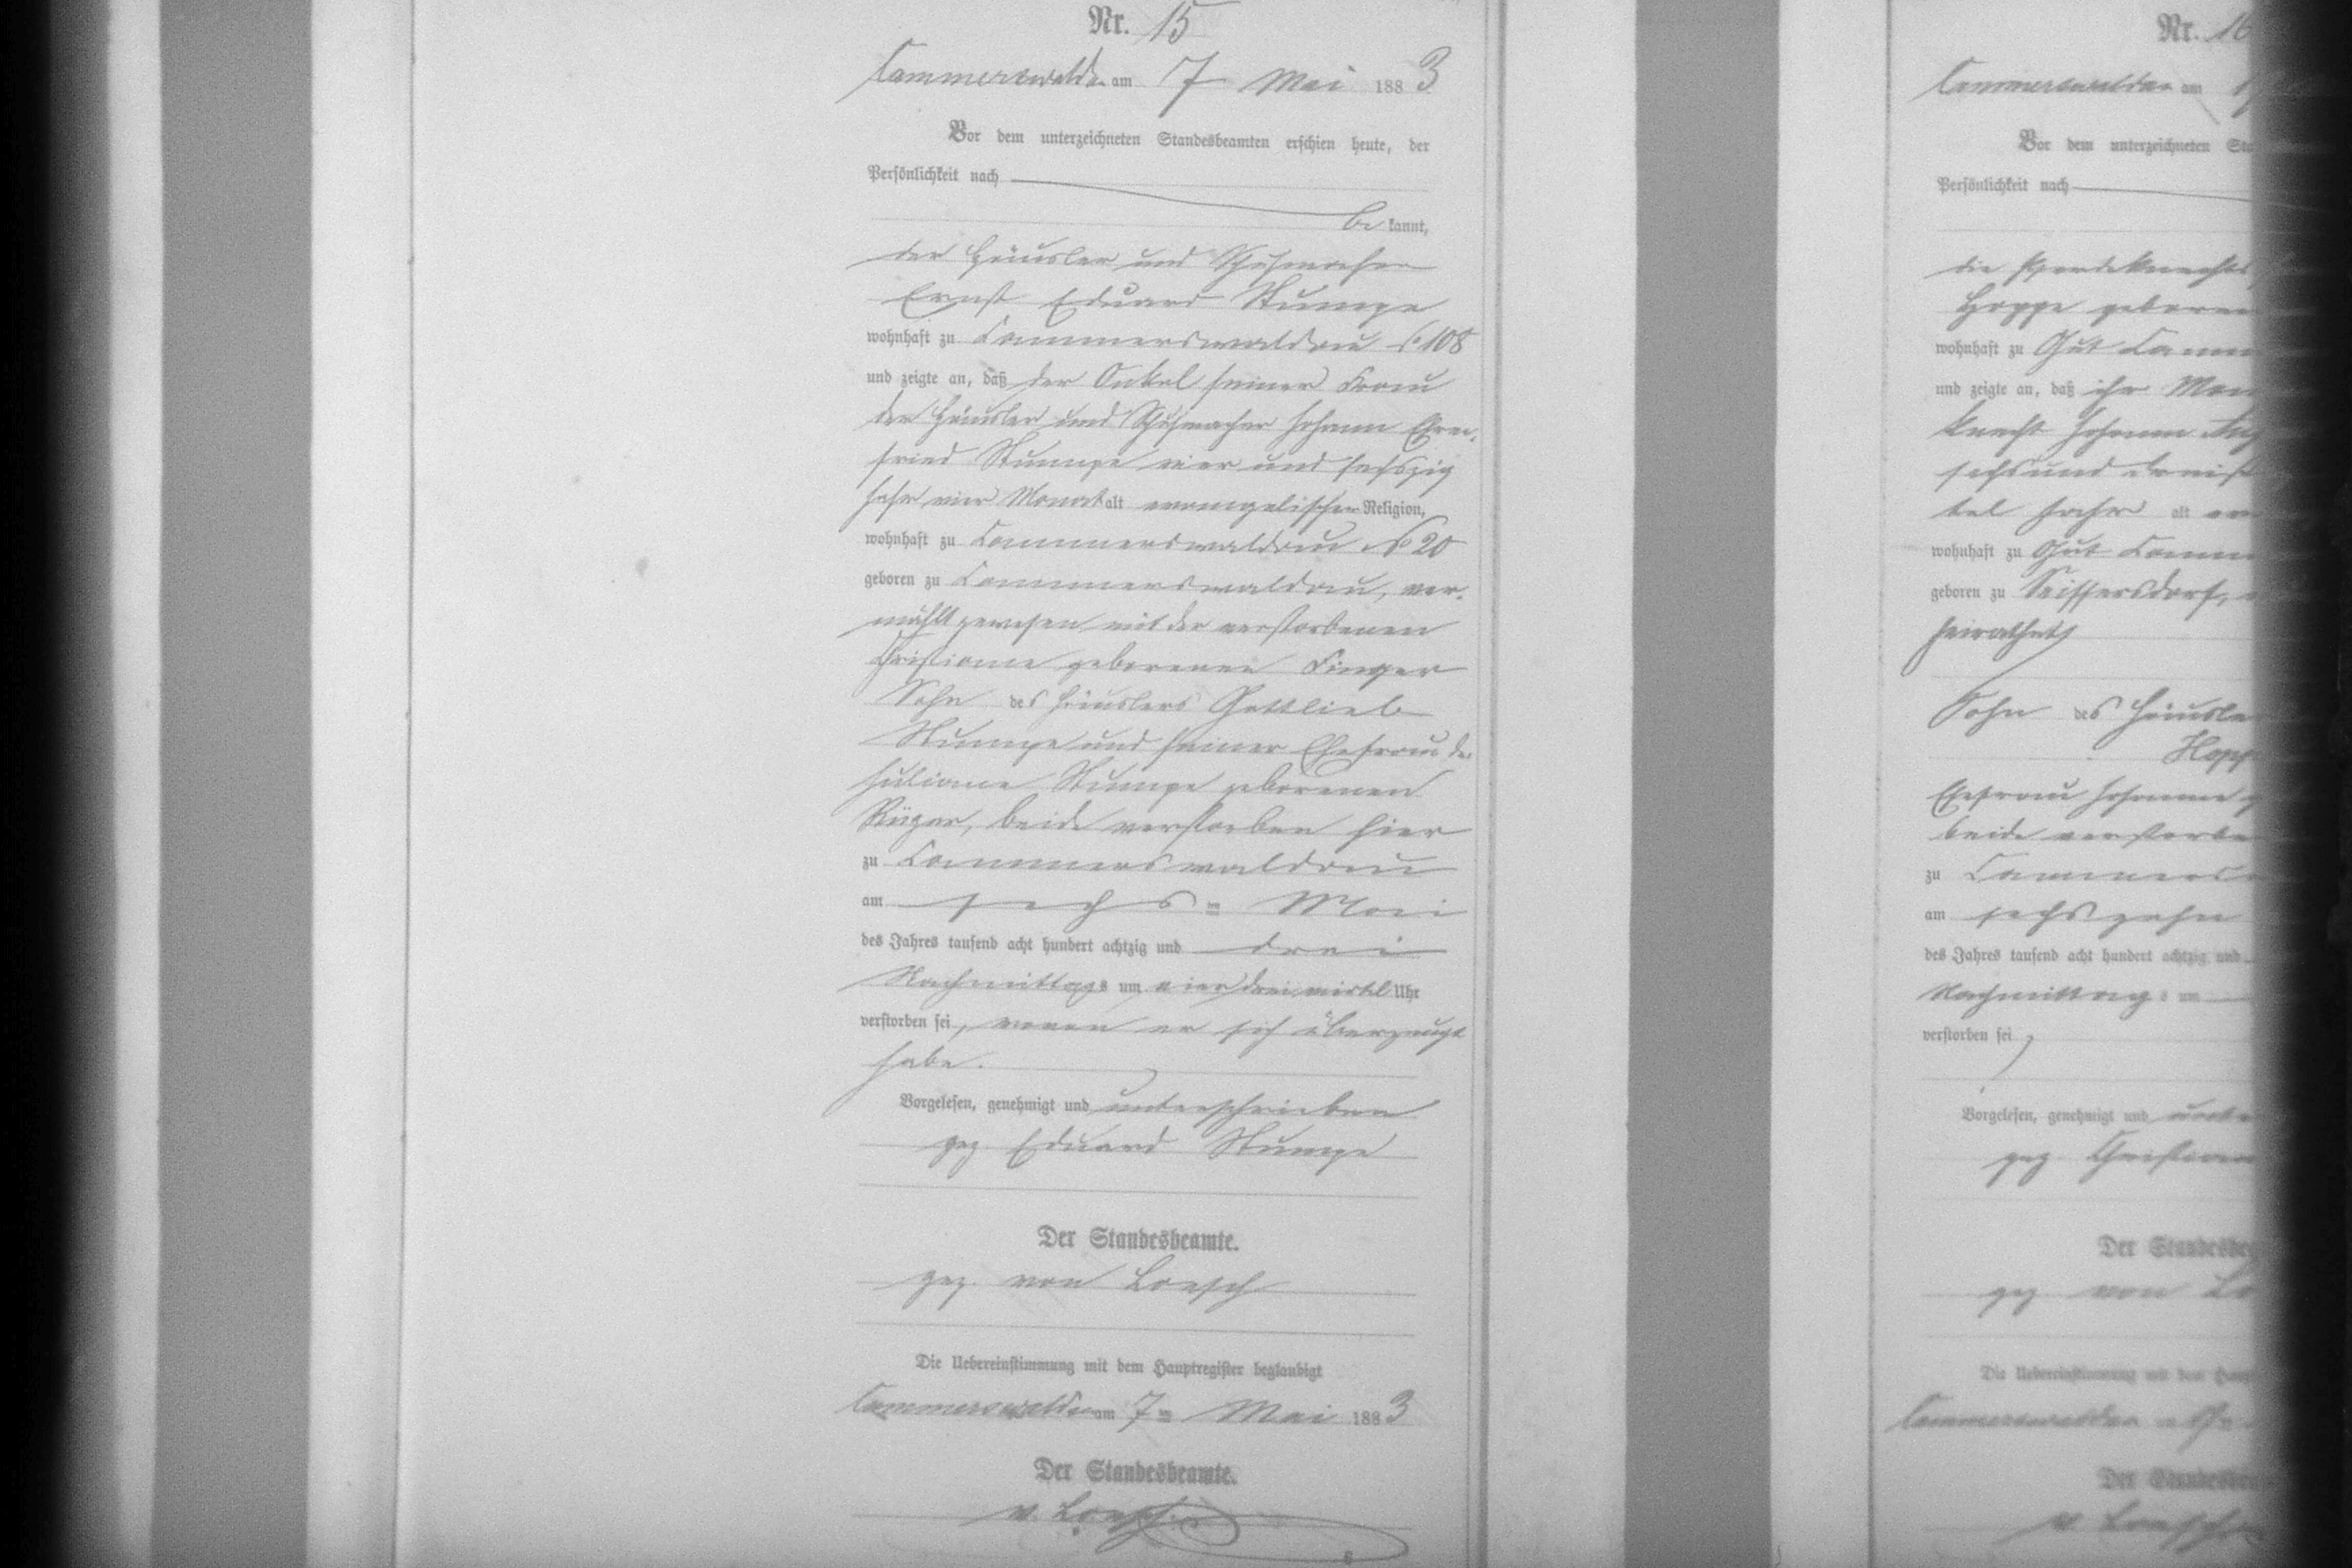 Nr. 15
Cammerswaldau am 7 Mai 1883
Vor dem unterzeichneten Standesbeamten erschien heute, der
Persönlichkeit nach
be kannt,
der Häusler und Schuhmacher
Ernst Eduard Stumpe
wohnhaft zu Cammerswaldau No 108
und zeigte an, daß der Onkel seiner Frau
der Häusler und Schuhmacher Johann Ehren-
fried Stumpe vier und sechszig
Jahr vier Monat alt evangelischer Religion,
wohnhaft zu Cammerswaldau No 20
geboren zu Cammerswaldau, ver-
mählt gewesen mit der verstorbenen
Christiane geborenen Finger
Sohn des Häuslers Gottlieb
Stumpe und seiner Ehefrau der
Juliane Stumpe geborenen
beide verstorben hier
zu Cammerswaldau
am sechs ten Mai
des Jahres tausend acht hundert achtzig und drei
Nachmittags um vier drei viertel Uhr
verstorben sei, wovon er sich überzeugt
habe.
Vorgelesen, genehmigt und unterschrieben
gez. Eduard Stumpe
Der Standesbeamte.
gez. von Loesch
Die Uebereinstimmung mit dem Hauptregister beglaubigt
Cammerswaldau am 7ten Mai 1883
Der Standesbeamte.
v. Loesch
Nr. 16
Cammerswaldau am
Vor dem unterzeichneten
Persönlichkeit nach
die Pferdeknechts
Hoppe
wohnhaft zu Gut
und zeigte an, daß ihr
knecht Johann
sechs und
tel Jahr alt
wohnhaft zu Gut
geboren zu Seiffersdorf,
heirathet
Sohn des
Ehefrau Johanne
beide
zu
am sechszehn
des Jahres tausend acht hundert achtzig und
Nachmittags um
verstorben sei
Vorgelesen, genehmigt und
gez.
Der
gez. von
Die Uebereinstimmung mit dem
Cammerswaldau
Der
v. Loesch